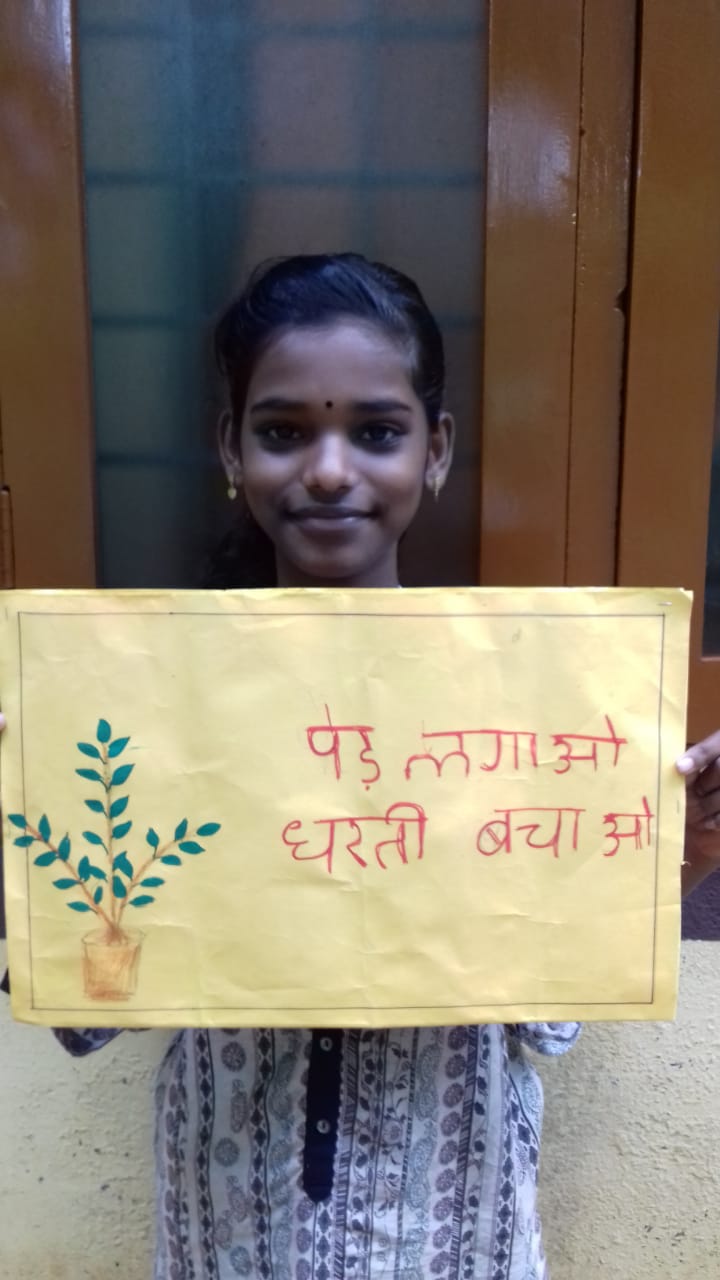 पेड़ लगाओ
धरती बचाओ